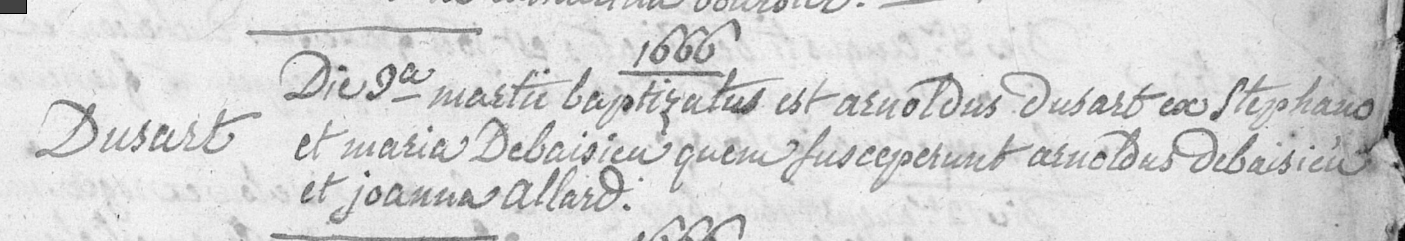 1666
Die 9a martii baptizatus est arnoldus dusart ex Stephano
Dusart
et maria Debaisieu quem susceperunt arnoldus debaisieu
et joanna allard.